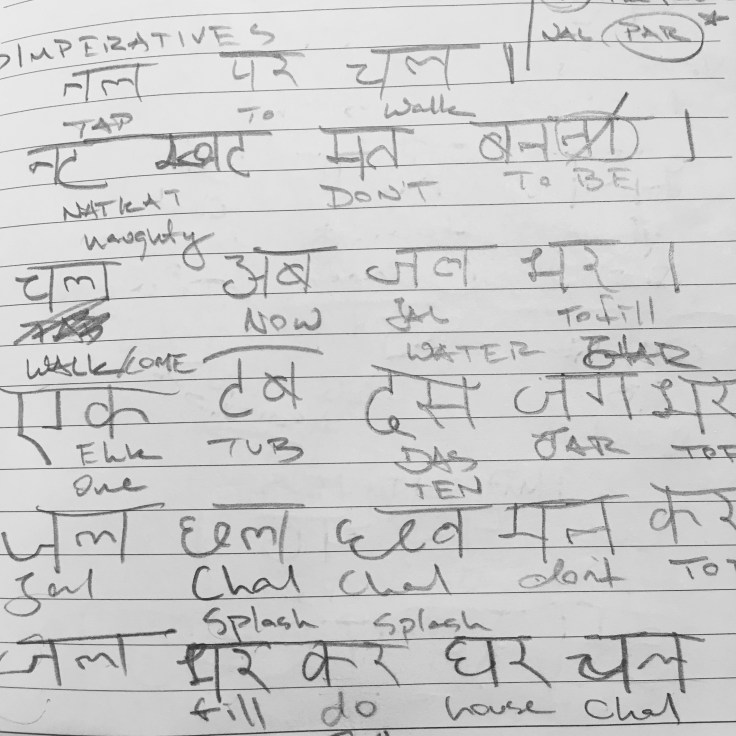 IMPERATIVES
NAL (PAR) *
नल पर चल |
TAP TO Walk
नट खट मत बन |
NATKAT DON'T TO BE
naughty
चल अब जल भर |
NOW JAL TO fill
WALK/COME WATER
एक टब दस जग भर
Ehk TUB DAS JAR
One TEN
जल छल छल मत कर
Jal Chal Chal don't TO
Splash Splash
जल भर कर घर चल
fill do house Chal